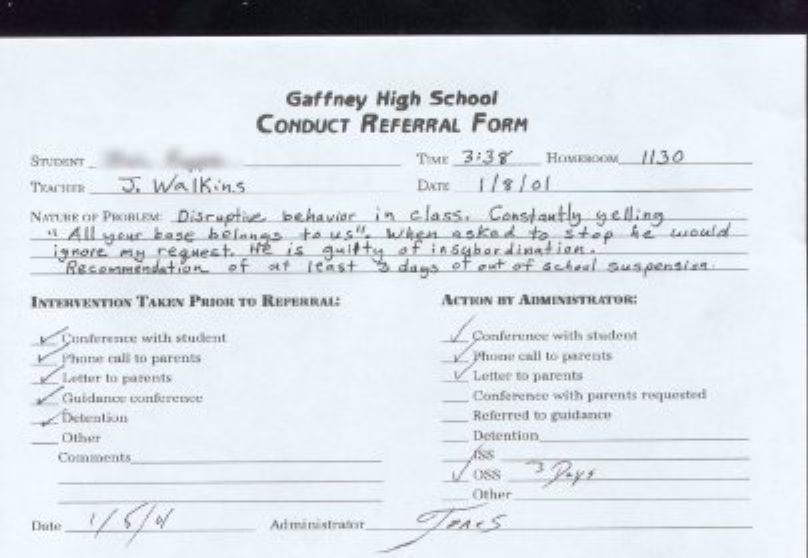 Gaffney High School
CONDUCT REFERRAL FORM
STUDENT TIME 3:38 HOMEROOM 1130
TEACHER J. Walkins DATE 1/8/01
NATURE OF PROBLEM: Disruptive behavior in class. Constantly yelling
"All your base belongs to us". When asked to stop he would
ignore my request. He is guilty of insubordination.
Recommendation of at least 3 days of out of school suspension.
INTERVENTION TAKEN PRIOR TO REFERRAL:
Conference with student
Phone call to parents
Letter to parents
Guidance conference
Detention
Other
Comments
ACTION BY ADMINISTRATOR:
Conference with student
Phone call to parents
Letter to parents
Conference with parents requested
Referred to guidance
Detention
ISS
OSS 3 Days
Other
Date Administrator Jones